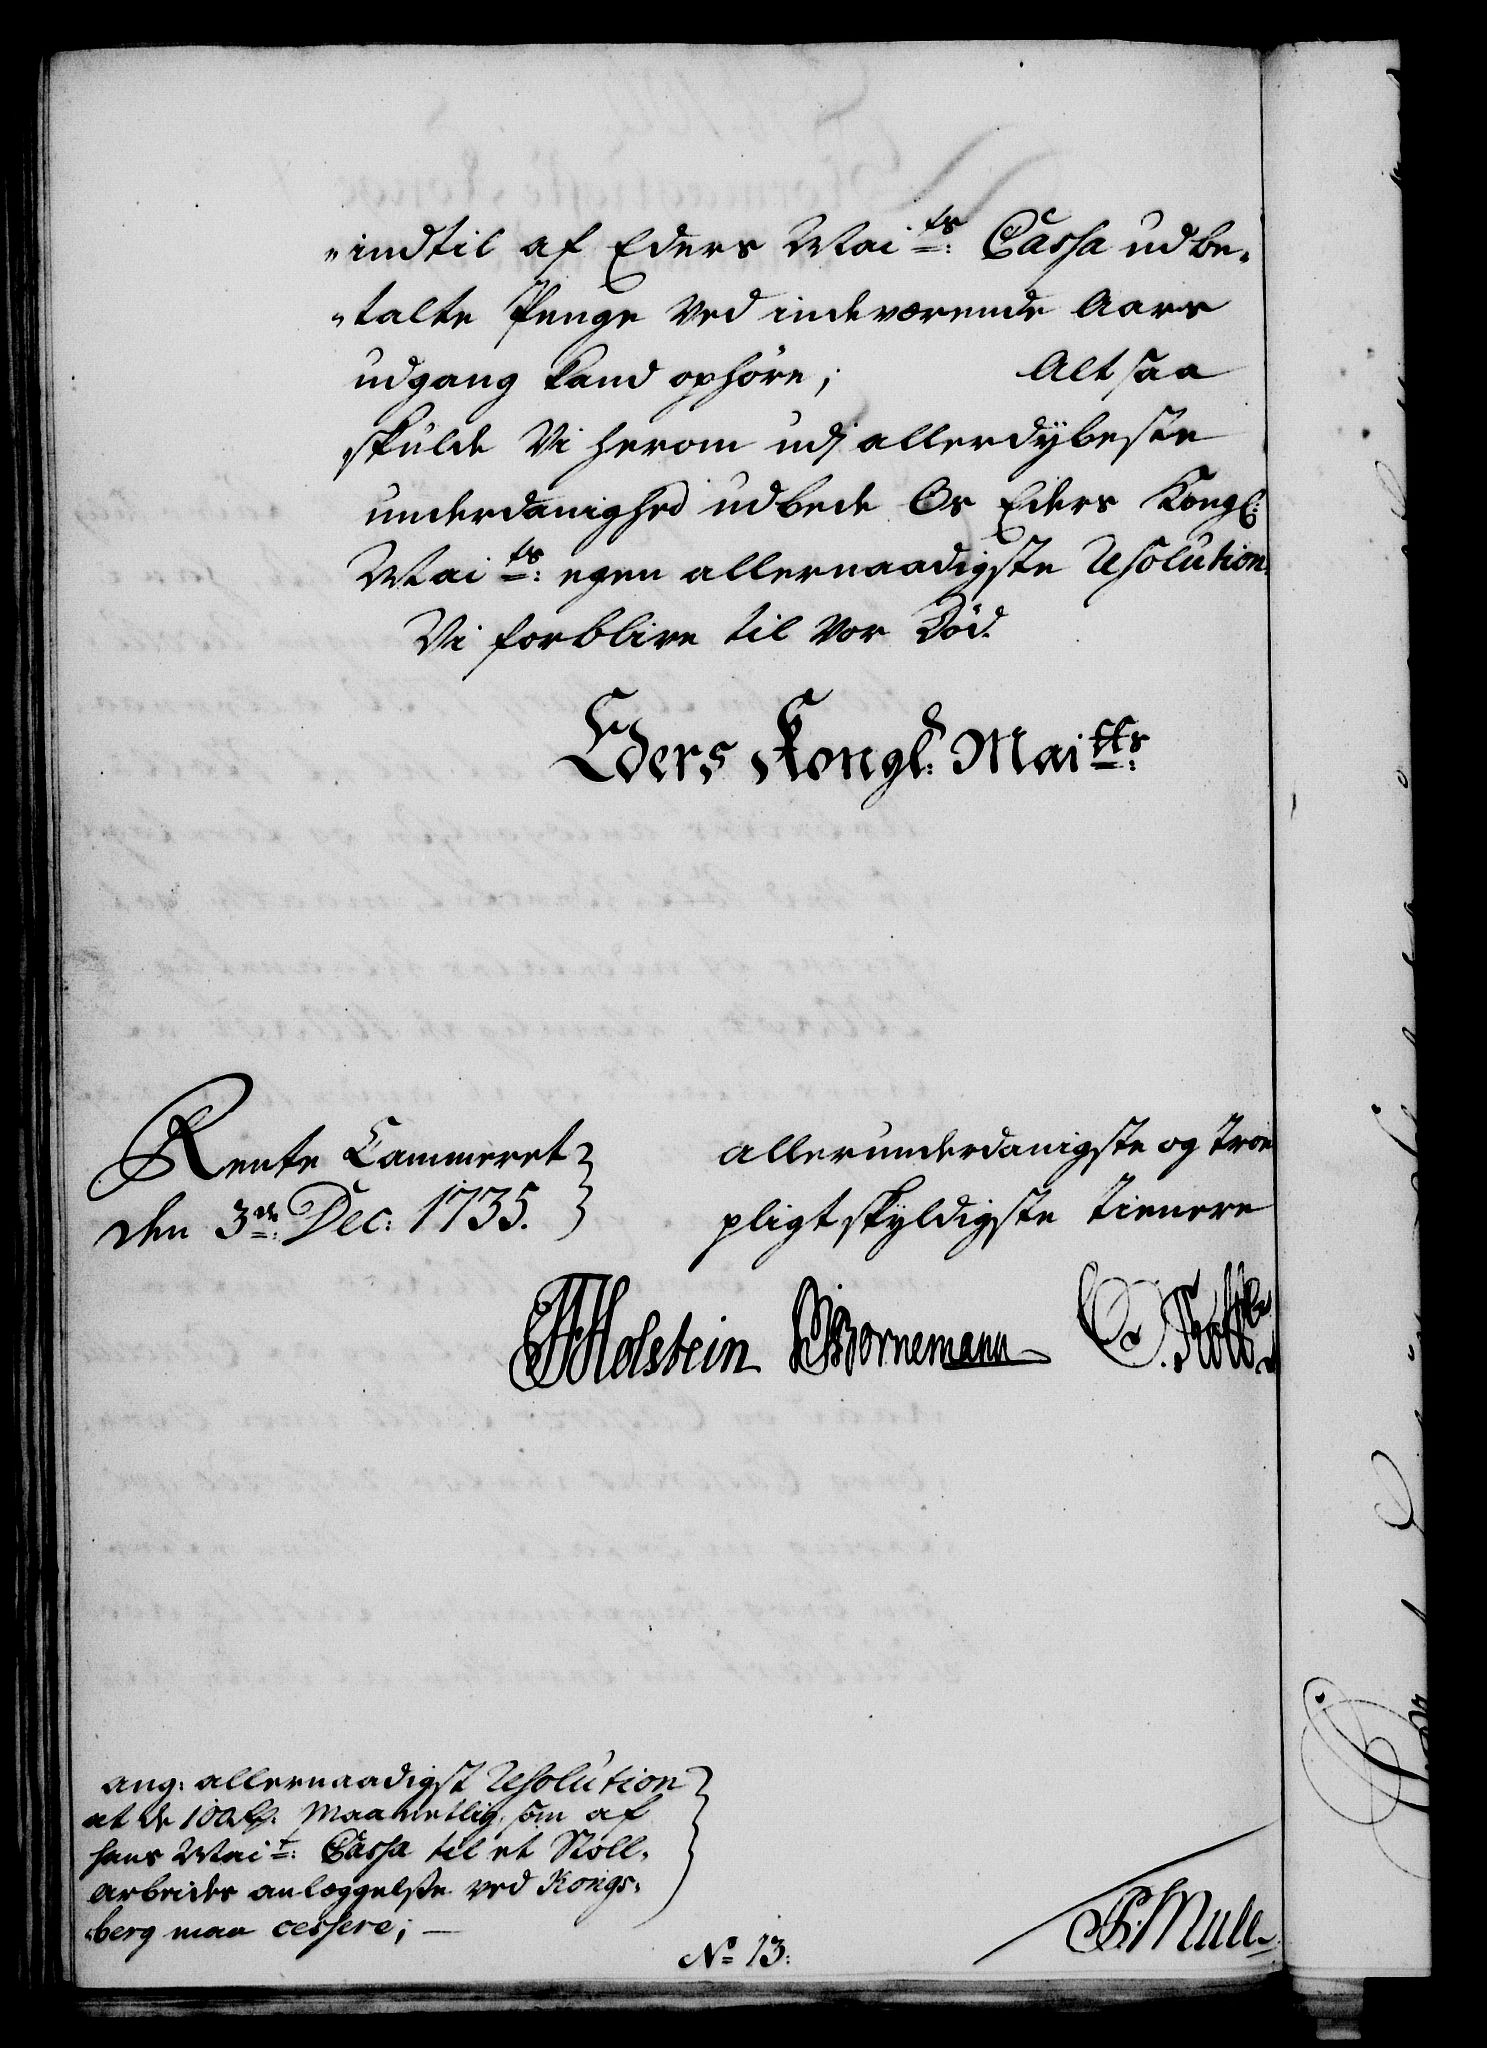 indtil af Eders Mai ts: Cassa udbe-
talte Penge Ved indeværende Aars
udgang kand ophöre; Alt saa
skulde Vi herom udj allerdÿbeste
underdanighed udbede Os Eders Kongl:
Mai ts: egen allernaadigste Resolution.
Vi forblive til Vor Död.
Eders Kongl: Mai tts:
Rente Cammeret
den 3de Dec: 1735.
allerunderdanigste og troe
pligtskyldigste tienere
Holstein Bornemann
ang: allernaadigst Resolution
at de 100 Maanetlig, som af
hans Mai t: Cassa til et Stoll-
arbeides anlæggelse ved Kongs-
berg maa cessere;
No 13.